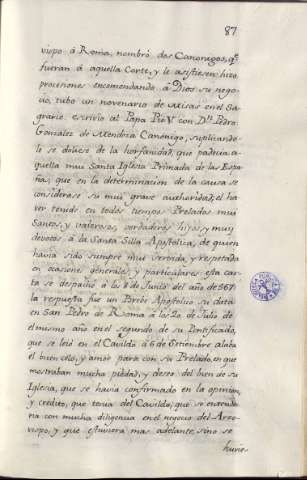 87
vispo á Roma, nombró dos Canonigos, qe.
fueran á aquella Corte, y le asistiesen: hizo
procesiones encomendando á Dios su nego-
cio, tubo un novenario de Misas en el Sa-
grario. escrivio al Papa Pio V con Dn. Pedro
Gonzalez de Mendoza Canonigo, suplicando-
le se doliese de la horfanidad, que padecia a-
quella mui Santa Iglesia Primada de las Espa-
ñas; que en la determinacion de la causa se
considerase su mui grave authoridad, el ha-
ver tenido en todos tiempos Prelados mui
Santos, y valerosos, verdaderos hijos y muy
devotos á la Santa Silla Apostolica, de quien
havia sido siempre mui servida, y respetada
en ocasiones generales y particulares. esta car-
ta se despachó á los 8 de Junio del año de 567.
la respuesta fue un Breve Apostolico su data
en San Pedro de Roma á los 20 de Julio de
el mismo año en el segundo de su Pontificado,
que se leió en el Cavildo á 6 de Setiembre. alaba
el buen celo, y amor para con su Prelado, en que
mostraban mucha piedad, y deseo del bien de su
Iglesia, que se havia confirmado en la opinion,
y credito, que tenia del Cavildo, que se entende-
ria con mucha diligencia en el negocio del Arzo-
vispo, y que estuviera mas adelante, sino se
huvie-